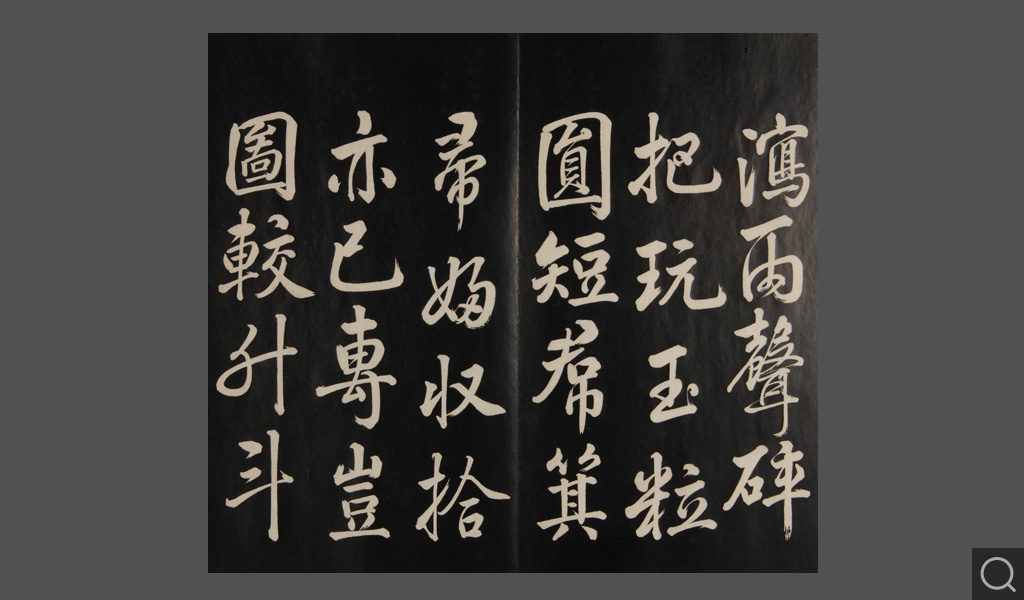 瀉雨聲碎
把玩玉粒
圓短帬箕
帚婦収拾
亦已專豈
圖較升斗